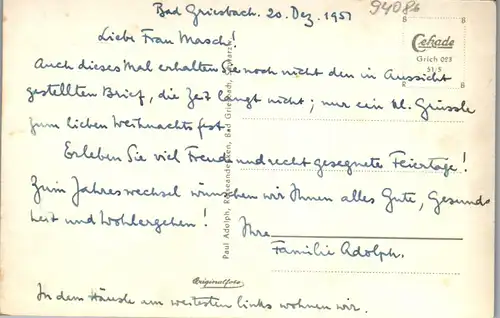 Bad Griesbach. 20. Dez. 1951
94086
Liebe Frau Masch!
Cekade
Grich 023
51/5
Auch dieses Mal erhalten Sie noch nicht den in Aussicht
gestellten Brief, die Zeit langt nicht; nur ein kl. Grüssle
zum lieben Weihnachtsfest.
Erleben Sie viel Freude und recht gesegnete Feiertage!
Zum Jahreswechsel wünschen wir Ihnen alles Gute, Gesund-
heit und Wohlergehen!
Ihre
Familie Adolph.
In dem Häusle am weitesten links wohnen wir.
Paul Adolph, Bad Griesbach, Schwarzw.
Originalfoto